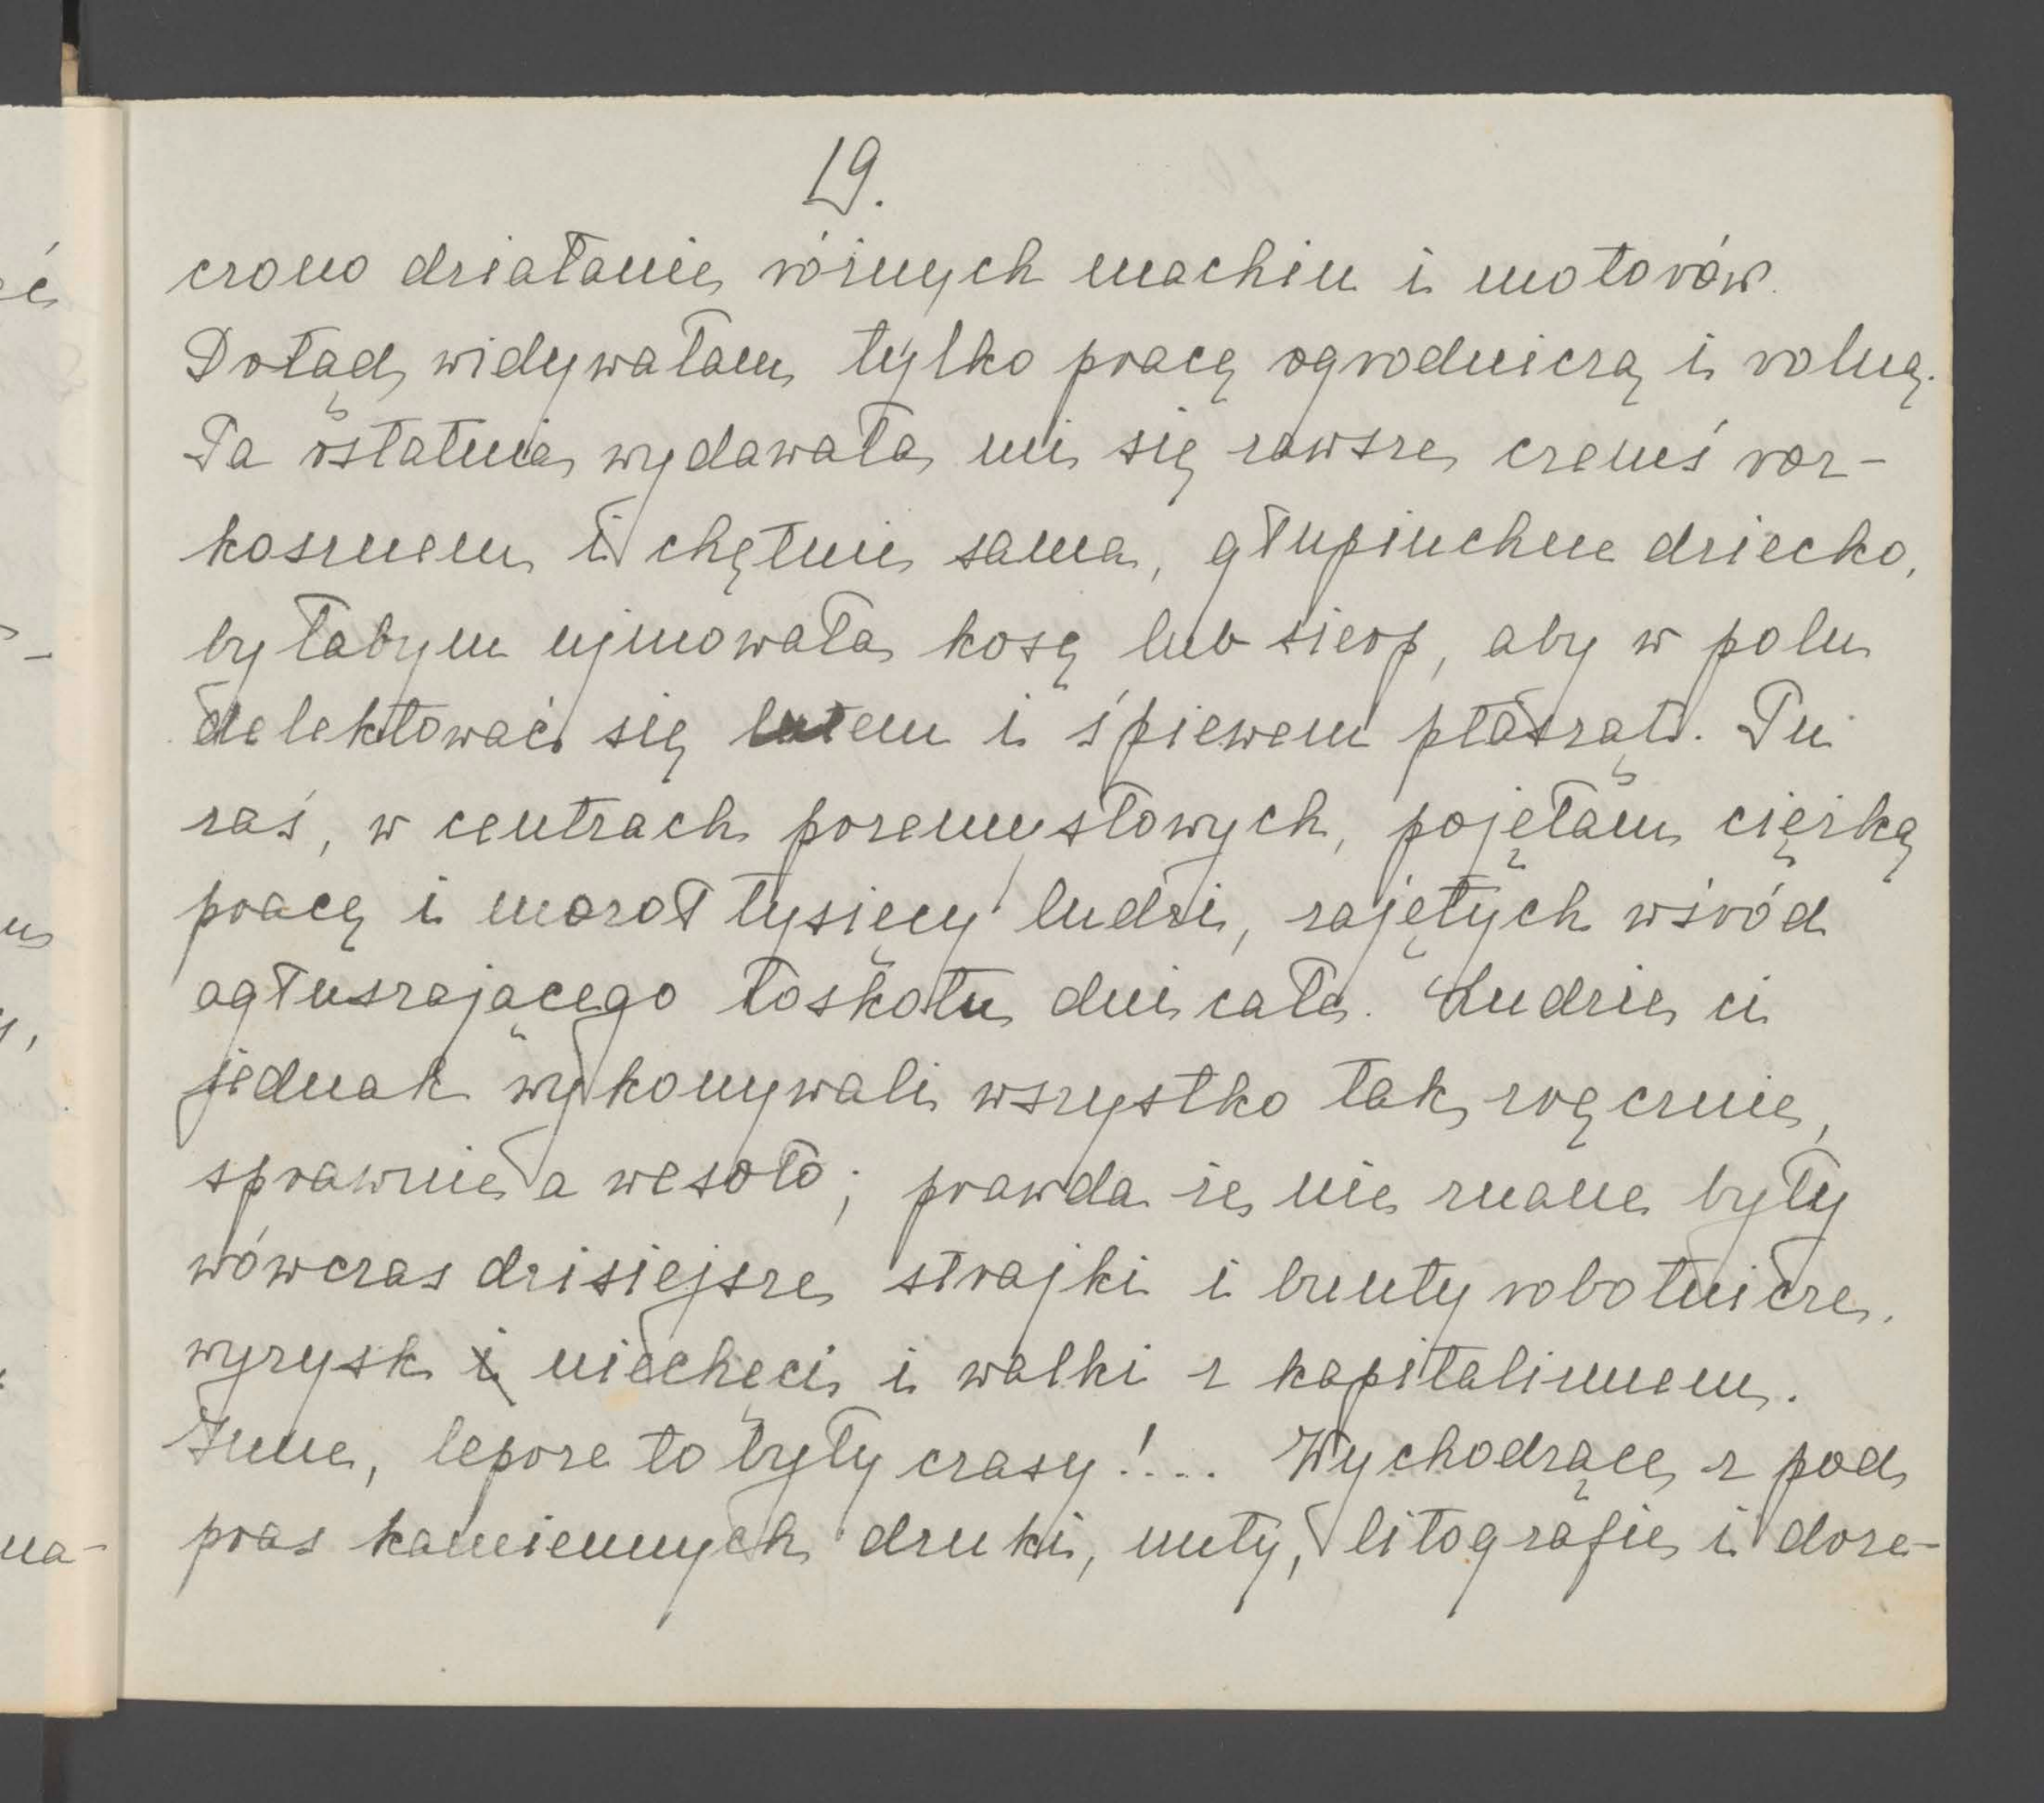 19.
czono działanie różnych machin i motorów.
Dotąd widywałam tylko pracę ogrodniczą i rolną.
Ta ostatnia wydawała mi się zawsze czemś roz-
kosznem i chętnie sama, głupiuchne dziecko,
byłabym ujmowała kosę lub sierp, aby w polu
delektować się latem i śpiewem ptasząt. Tu
zaś, w centrach przemysłowych, pojęłam ciężką
pracę i mozoł tysięcy ludzi, zajętych wśród
ogłuszającego łoskotu dnie całe. Ludzie ci
jednak wykonywali wszystko tak zręcznie,
sprawnie a wesoło; prawda że nie znane były
wówczas dzisiejsze strajki i bunty robotnicze,
wyzysk i niechęci i walki z kapitalizmem.
Inne, lepsze to były czasy!... Wychodzące z pod
pras kamiennych druki, nuty, litografie i dosa-
ść
na-